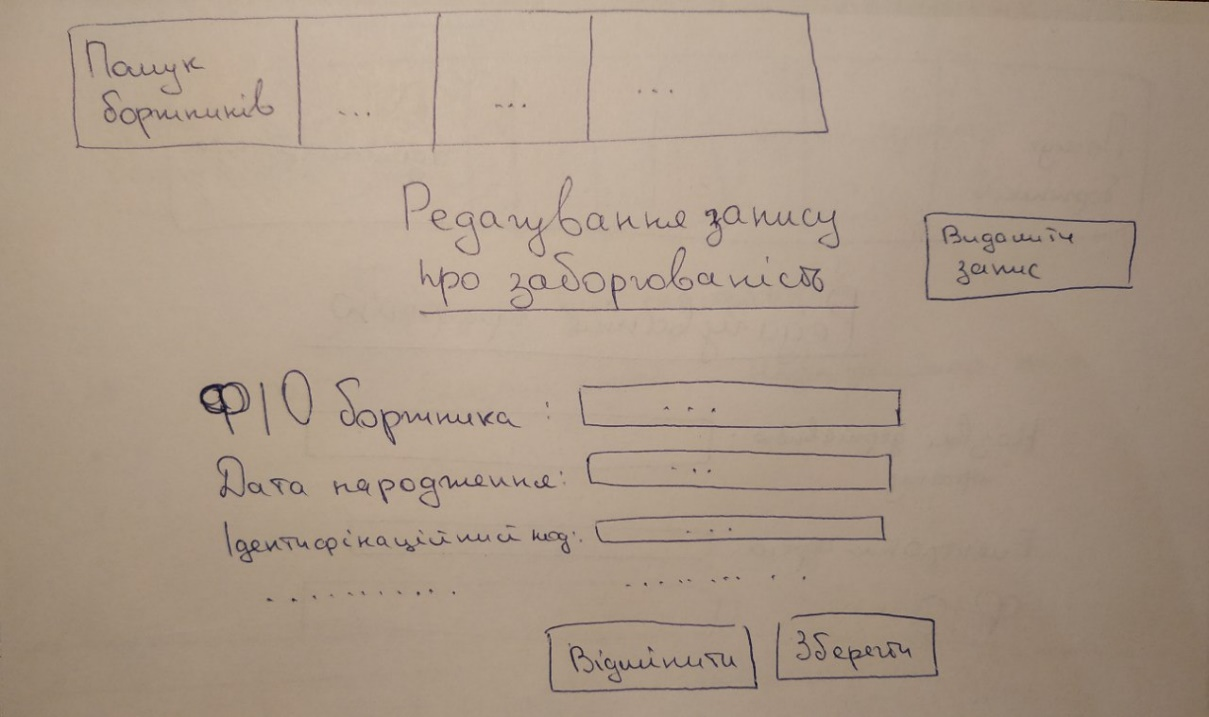 Пошук
боржників
...
...
...
Редагування запису
про заборгованість
Видалити
запис
ФІО боржника : ...
Дата народження: ...
Ідентифікаційний код: ...
........... .........
Відмінити
Зберегти